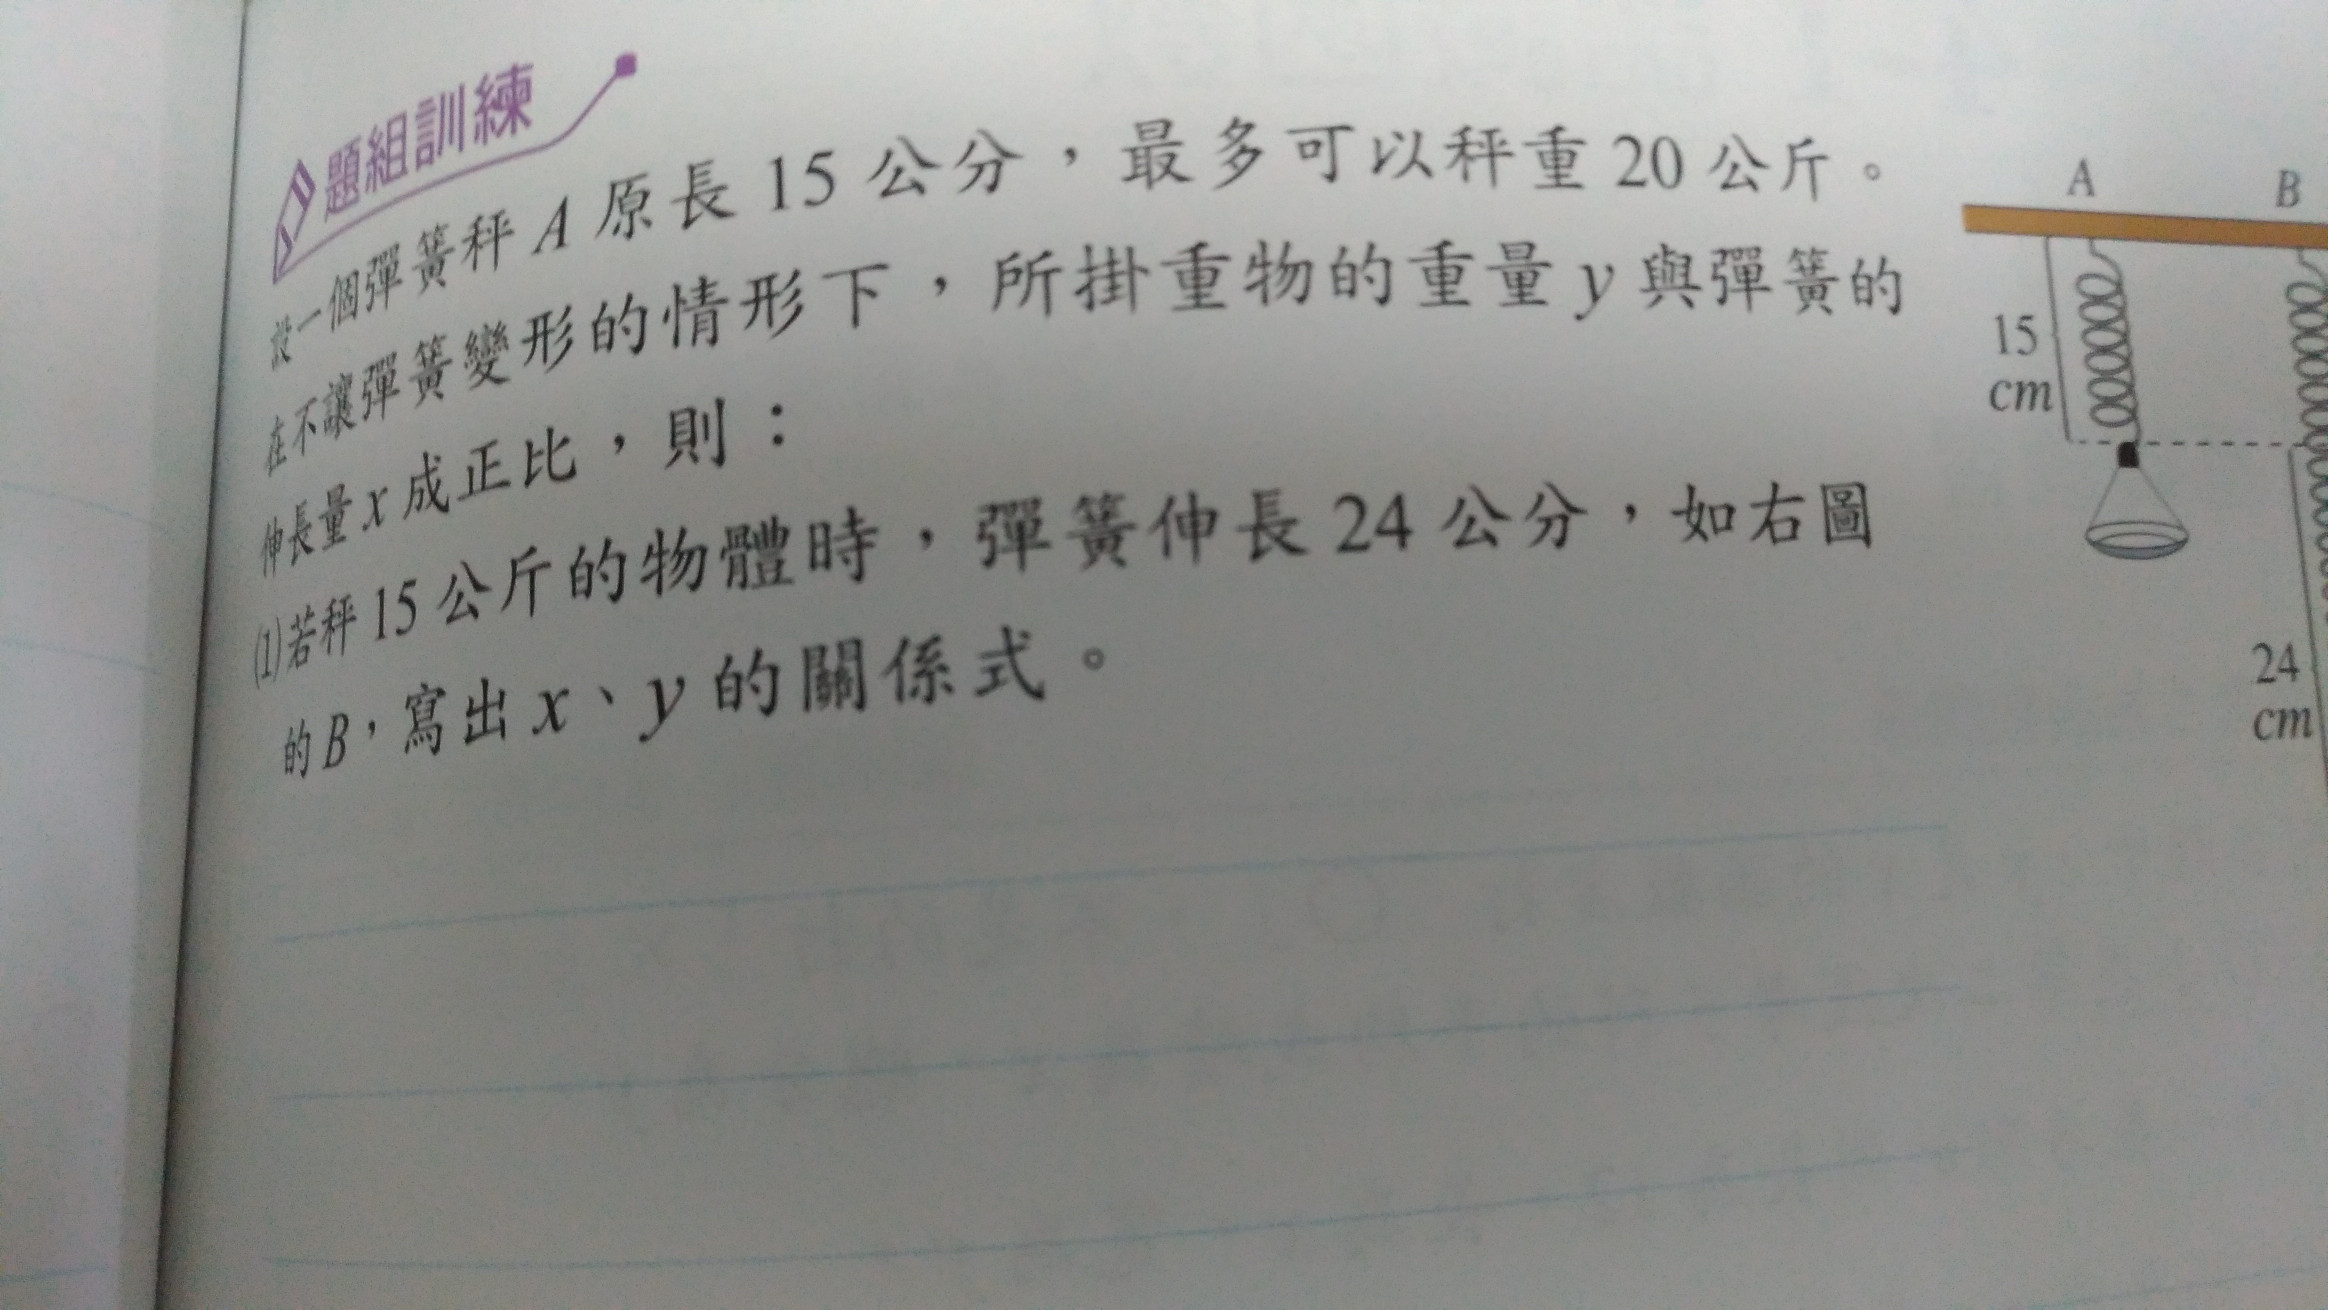 題組訓練
設一個彈簧秤 A 原長 15 公分，最多可以秤重 20 公斤。
在不讓彈簧變形的情形下，所掛重物的重量 y 與彈簧的
伸長量 x 成正比，則：
(1)若秤 15 公斤的物體時，彈簧伸長 24 公分，如右圖
的 B，寫出 x、y 的關係式。
A
B
15
cm
24
cm